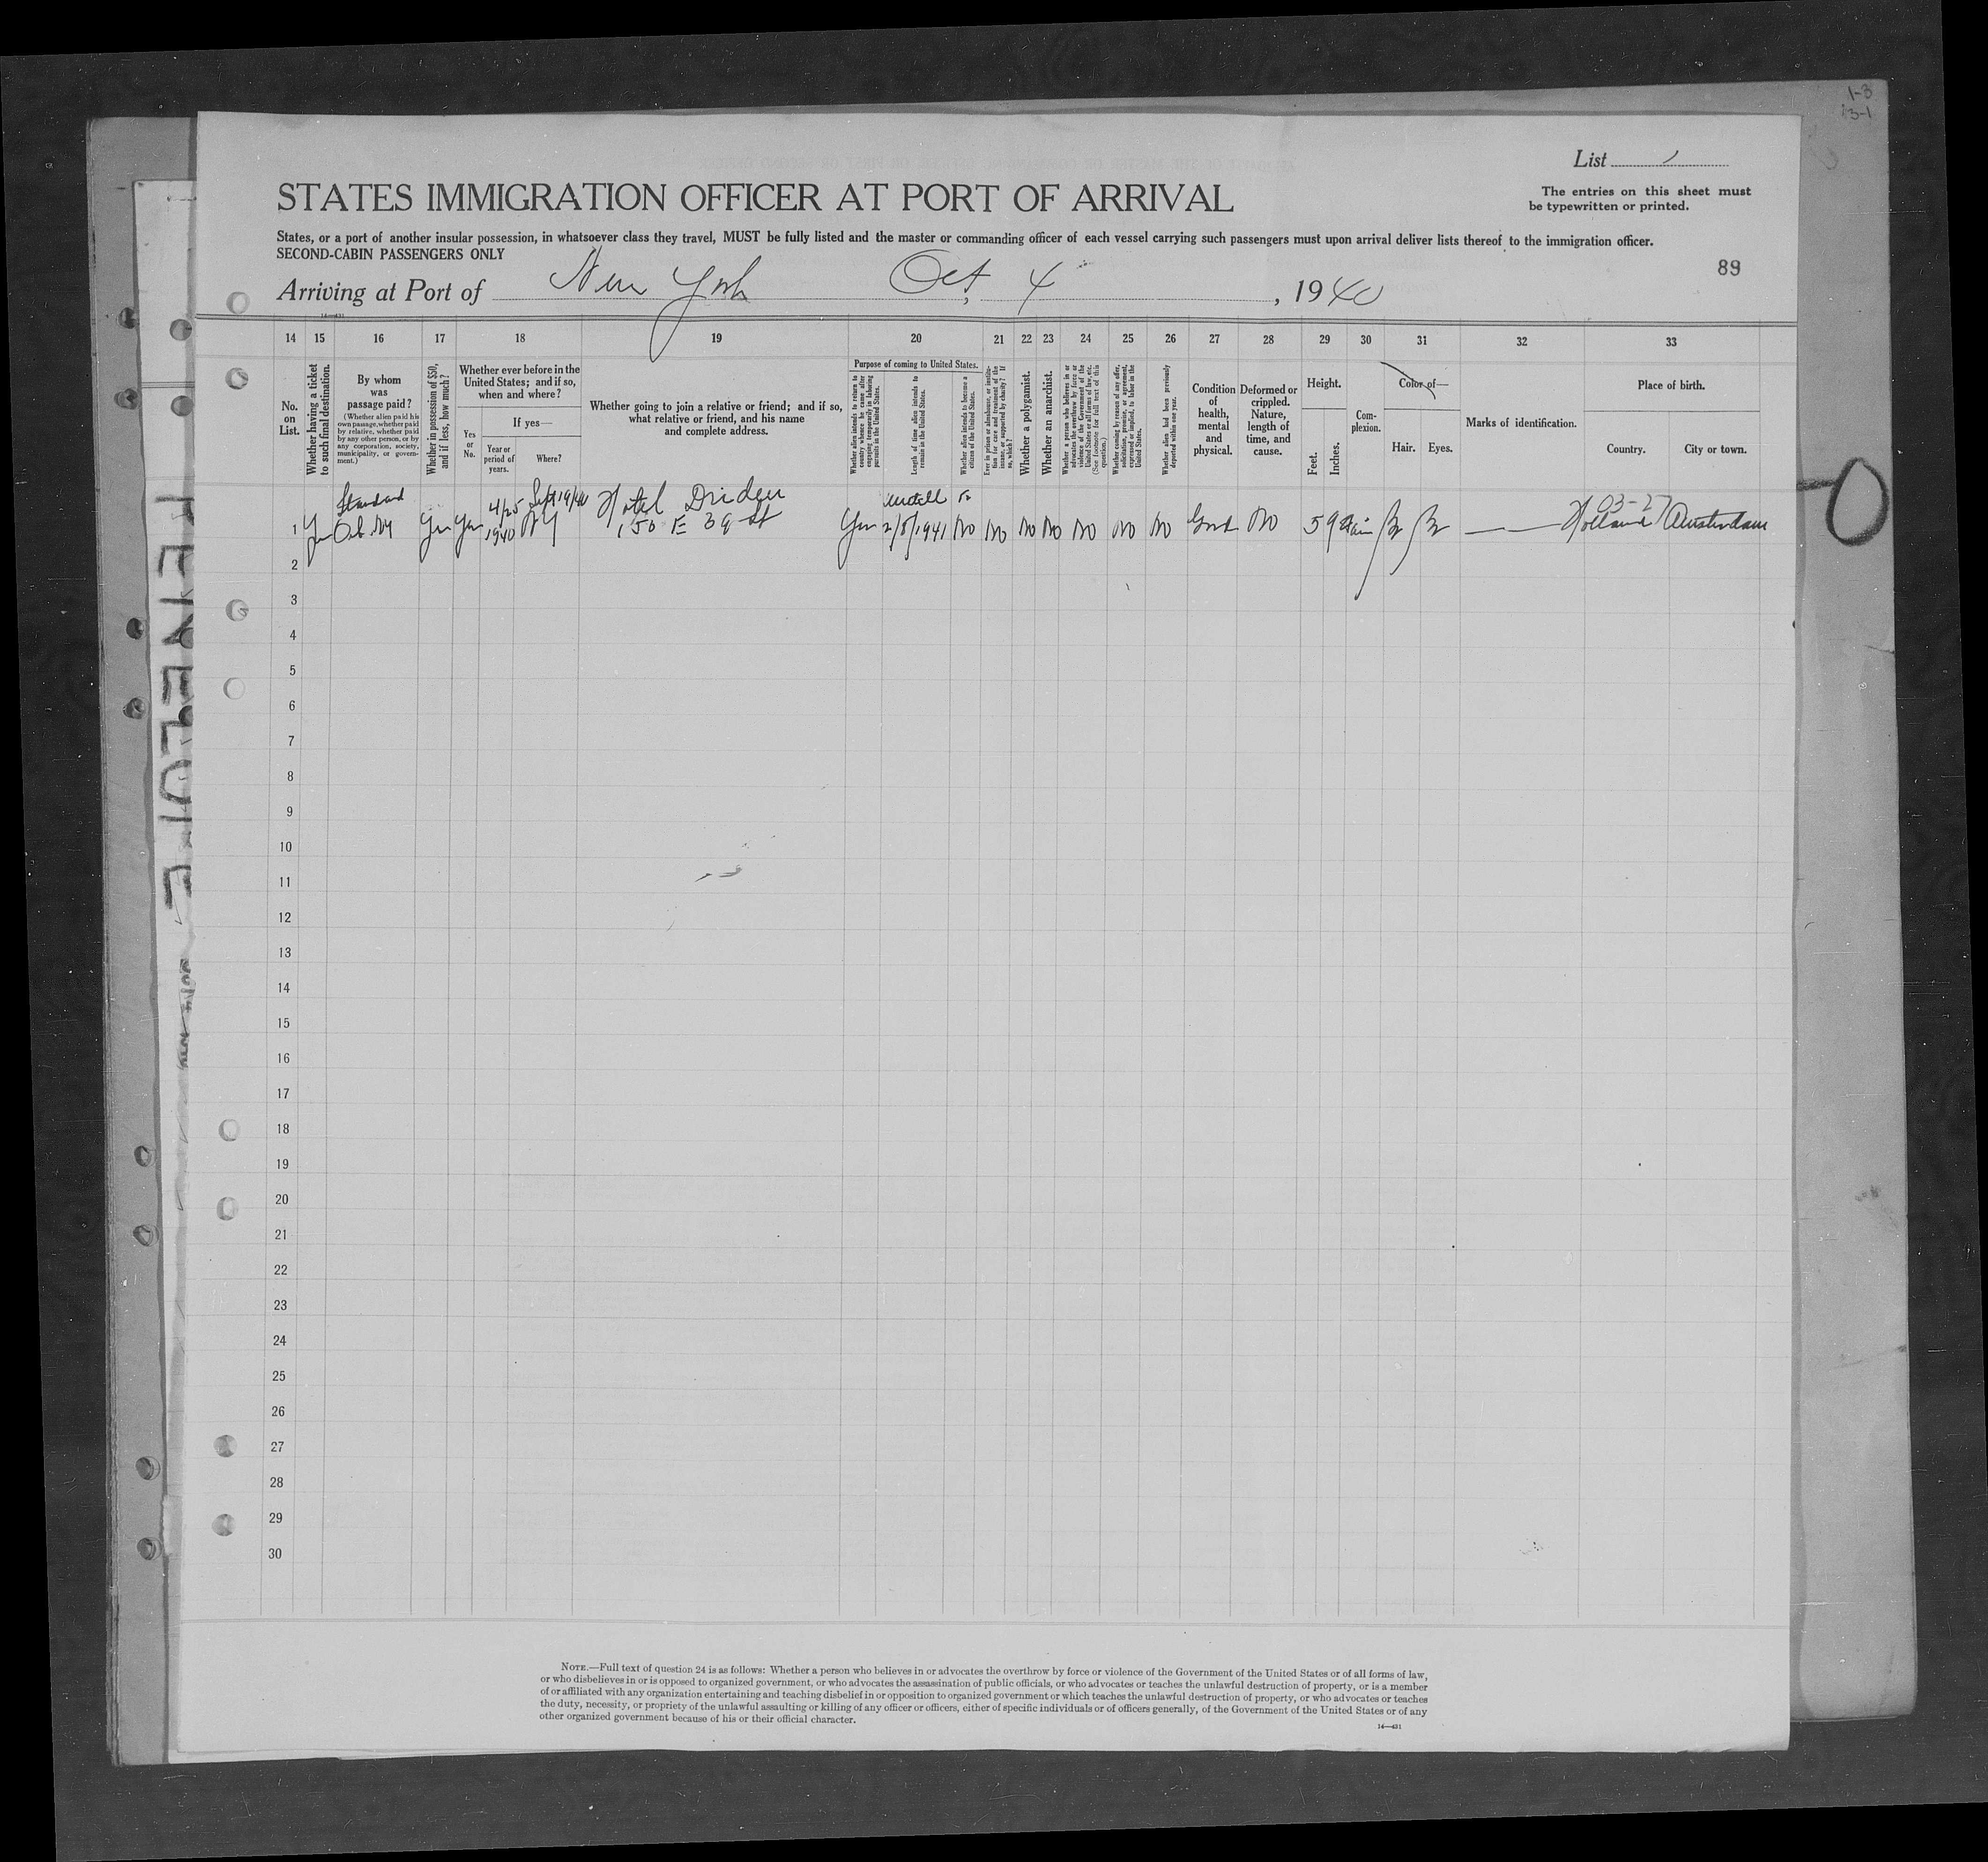 1-3
13-1
List 1
STATES IMMIGRATION OFFICER AT PORT OF ARRIVAL
The entries on this sheet must
be typewritten or printed.
States, or a port of another insular possession, in whatsoever class they travel, MUST be fully listed and the master or commanding officer of each vessel carrying such passengers must upon arrival deliver lists thereof to the immigration officer.
SECOND-CABIN PASSENGERS ONLY
89
Arriving at Port of New York Oct, 4, 1940
14 15 16 17 18 19 20 21 22 23 24 25 26 27 28 29 30 31 32 33
No. on List.
Whether having a ticket to such final destination.
By whom was passage paid?
(Whether alien paid his own passage, whether paid by relative, whether paid by any other person, or by any corporation, society, municipality, or government.)
Whether in possession of $50, and if less, how much?
Whether ever before in the United States; and if so, when and where?
Yes or No.
If yes—
Year or period of years.
Where?
Whether going to join a relative or friend; and if so, what relative or friend, and his name and complete address.
Purpose of coming to United States.
Whether alien intends to return to country whence he came after engaging temporarily in laboring pursuits in the United States.
Length of time alien intends to remain in the United States.
Whether alien intends to become a citizen of the United States.
Ever in prison or almshouse, or institution for care and treatment of the insane, or supported by charity? If so, which?
Whether a polygamist.
Whether an anarchist.
Whether a person who believes in or advocates the overthrow by force or violence of the Government of the United States or all forms of law, etc. (See footnote for full text of this question.)
Whether coming by reason of any offer, solicitation, promise, or agreement, expressed or implied, to labor in the United States.
Whether alien had been previously deported within one year.
Condition of health, mental and physical.
Deformed or crippled. Nature, length of time, and cause.
Height.
Feet. Inches.
Complexion.
Color of—
Hair. Eyes.
Marks of identification.
Place of birth.
Country. City or town.
Standard 4/25 Sept 19/40 Hotel 03-27
1 Yes Yes Yes 1940 NY 150 E 39 St Yes 2/8/1941 No No No No No No No Good No 5 9 Br Br Holland Amsterdam
2
3
4
5
6
7
8
9
10
11
12
13
14
15
16
17
18
19
20
21
22
23
24
25
26
27
28
29
30
NOTE.—Full text of question 24 is as follows: Whether a person who believes in or advocates the overthrow by force or violence of the Government of the United States or of all forms of law,
or who disbelieves in or is opposed to organized government, or who advocates the assassination of public officials, or who advocates or teaches the unlawful destruction of property, or is a member
of or affiliated with any organization entertaining and teaching disbelief in or opposition to organized government or which teaches the unlawful destruction of property, or who advocates or teaches
the duty, necessity, or propriety of the unlawful assaulting or killing of any officer or officers, either of specific individuals or of officers generally, of the Government of the United States or of any
other organized government because of his or their official character.
14—431